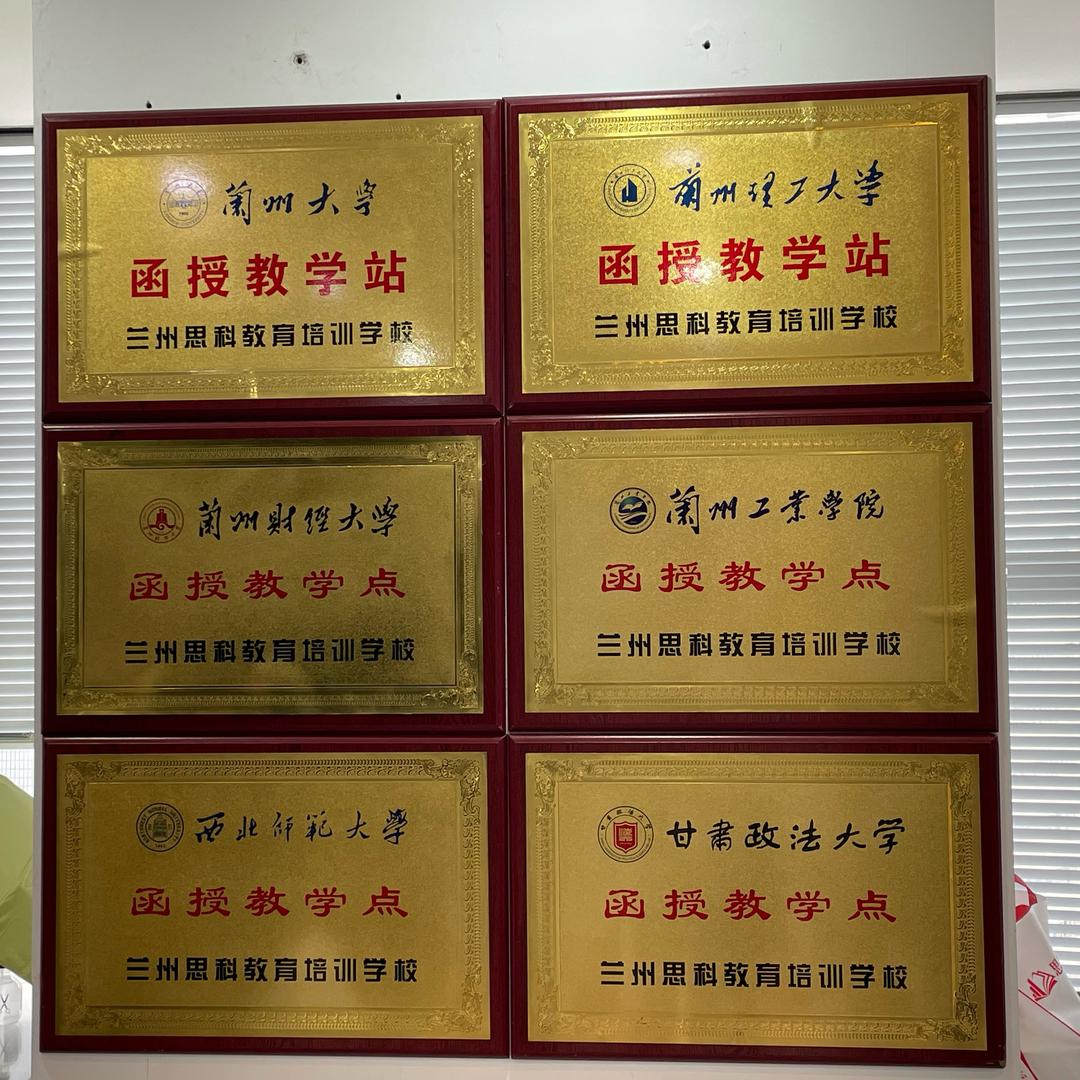 蘭州大學
函授教学站
兰州思科教育培训学校
蘭州理工大学
函授教学站
兰州思科教育培训学校
蘭州财经大学
函授教学点
兰州思科教育培训学校
蘭州工業學院
函授教学点
兰州思科教育培训学校
西北师範大學
函授教学点
兰州思科教育培训学校
甘肃政法大学
函授教学点
兰州思科教育培训学校